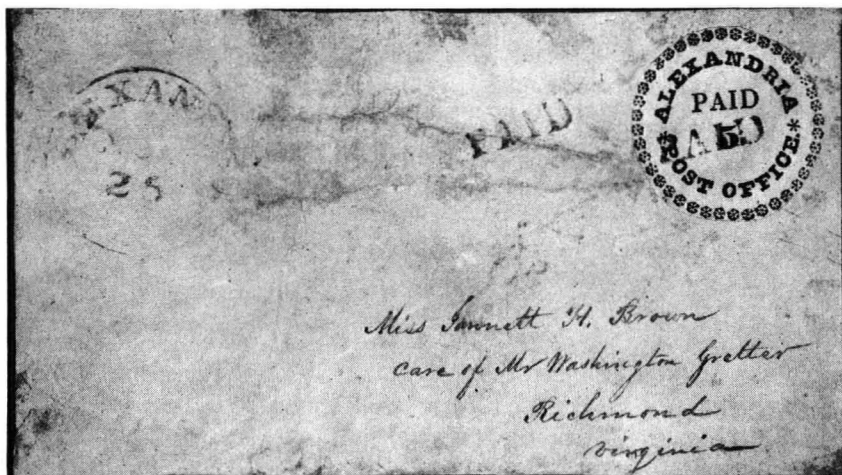 EXAN
25
PAID
ALEXANDRIA
PAID
PAID
5
POST OFFICE.
Miss Jannett H. Brown
Care of Mr Washington Gretter
Richmond
Virginia